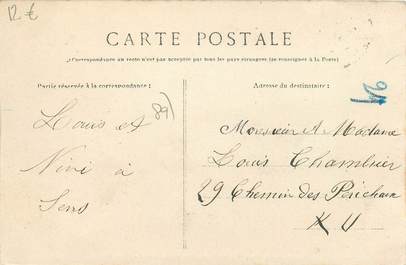 12 €
CARTE POSTALE
(La Correspondance au recto n'est pas acceptée par tous les pays étrangers (se renseigner à la Poste)
Partie réservée à la correspondance :
Adresse du destinataire :
89)
Louis et
Nini à
Sens
Monsieur et Madame
Louis Chambrier
29 Chemin des